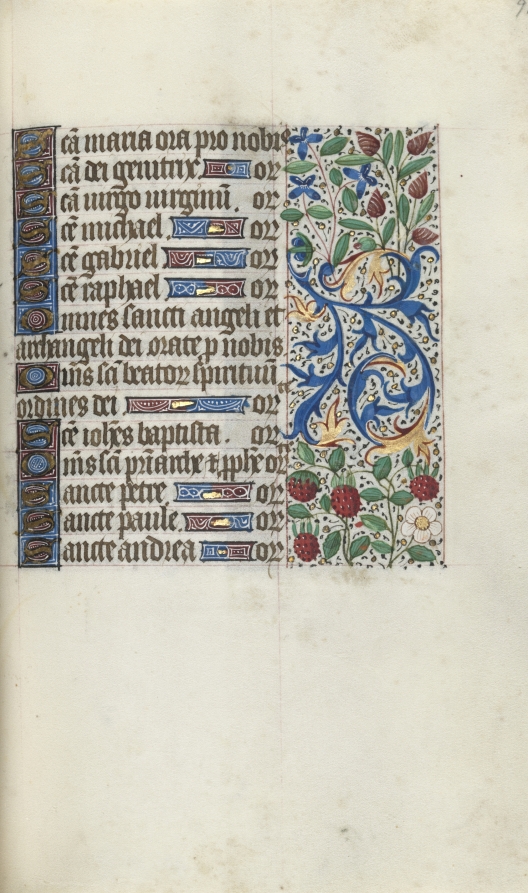 Scā maria ora pro nobis
Scā dei genitrix or
Scā uirgo uirginū. or
Scē michael or
Scē gabriel or
Scē raphael or
Omnes sancti angeli et
archangeli dei orate p nobis
Om̄s scī beatoꝝ spirituū
ordines dei or
Scē ioh̄es baptista. or
Om̄s scī pr̄iarche & ꝓph̄e or
Sancte petre or
Sancte paule or
Sancte andrea or